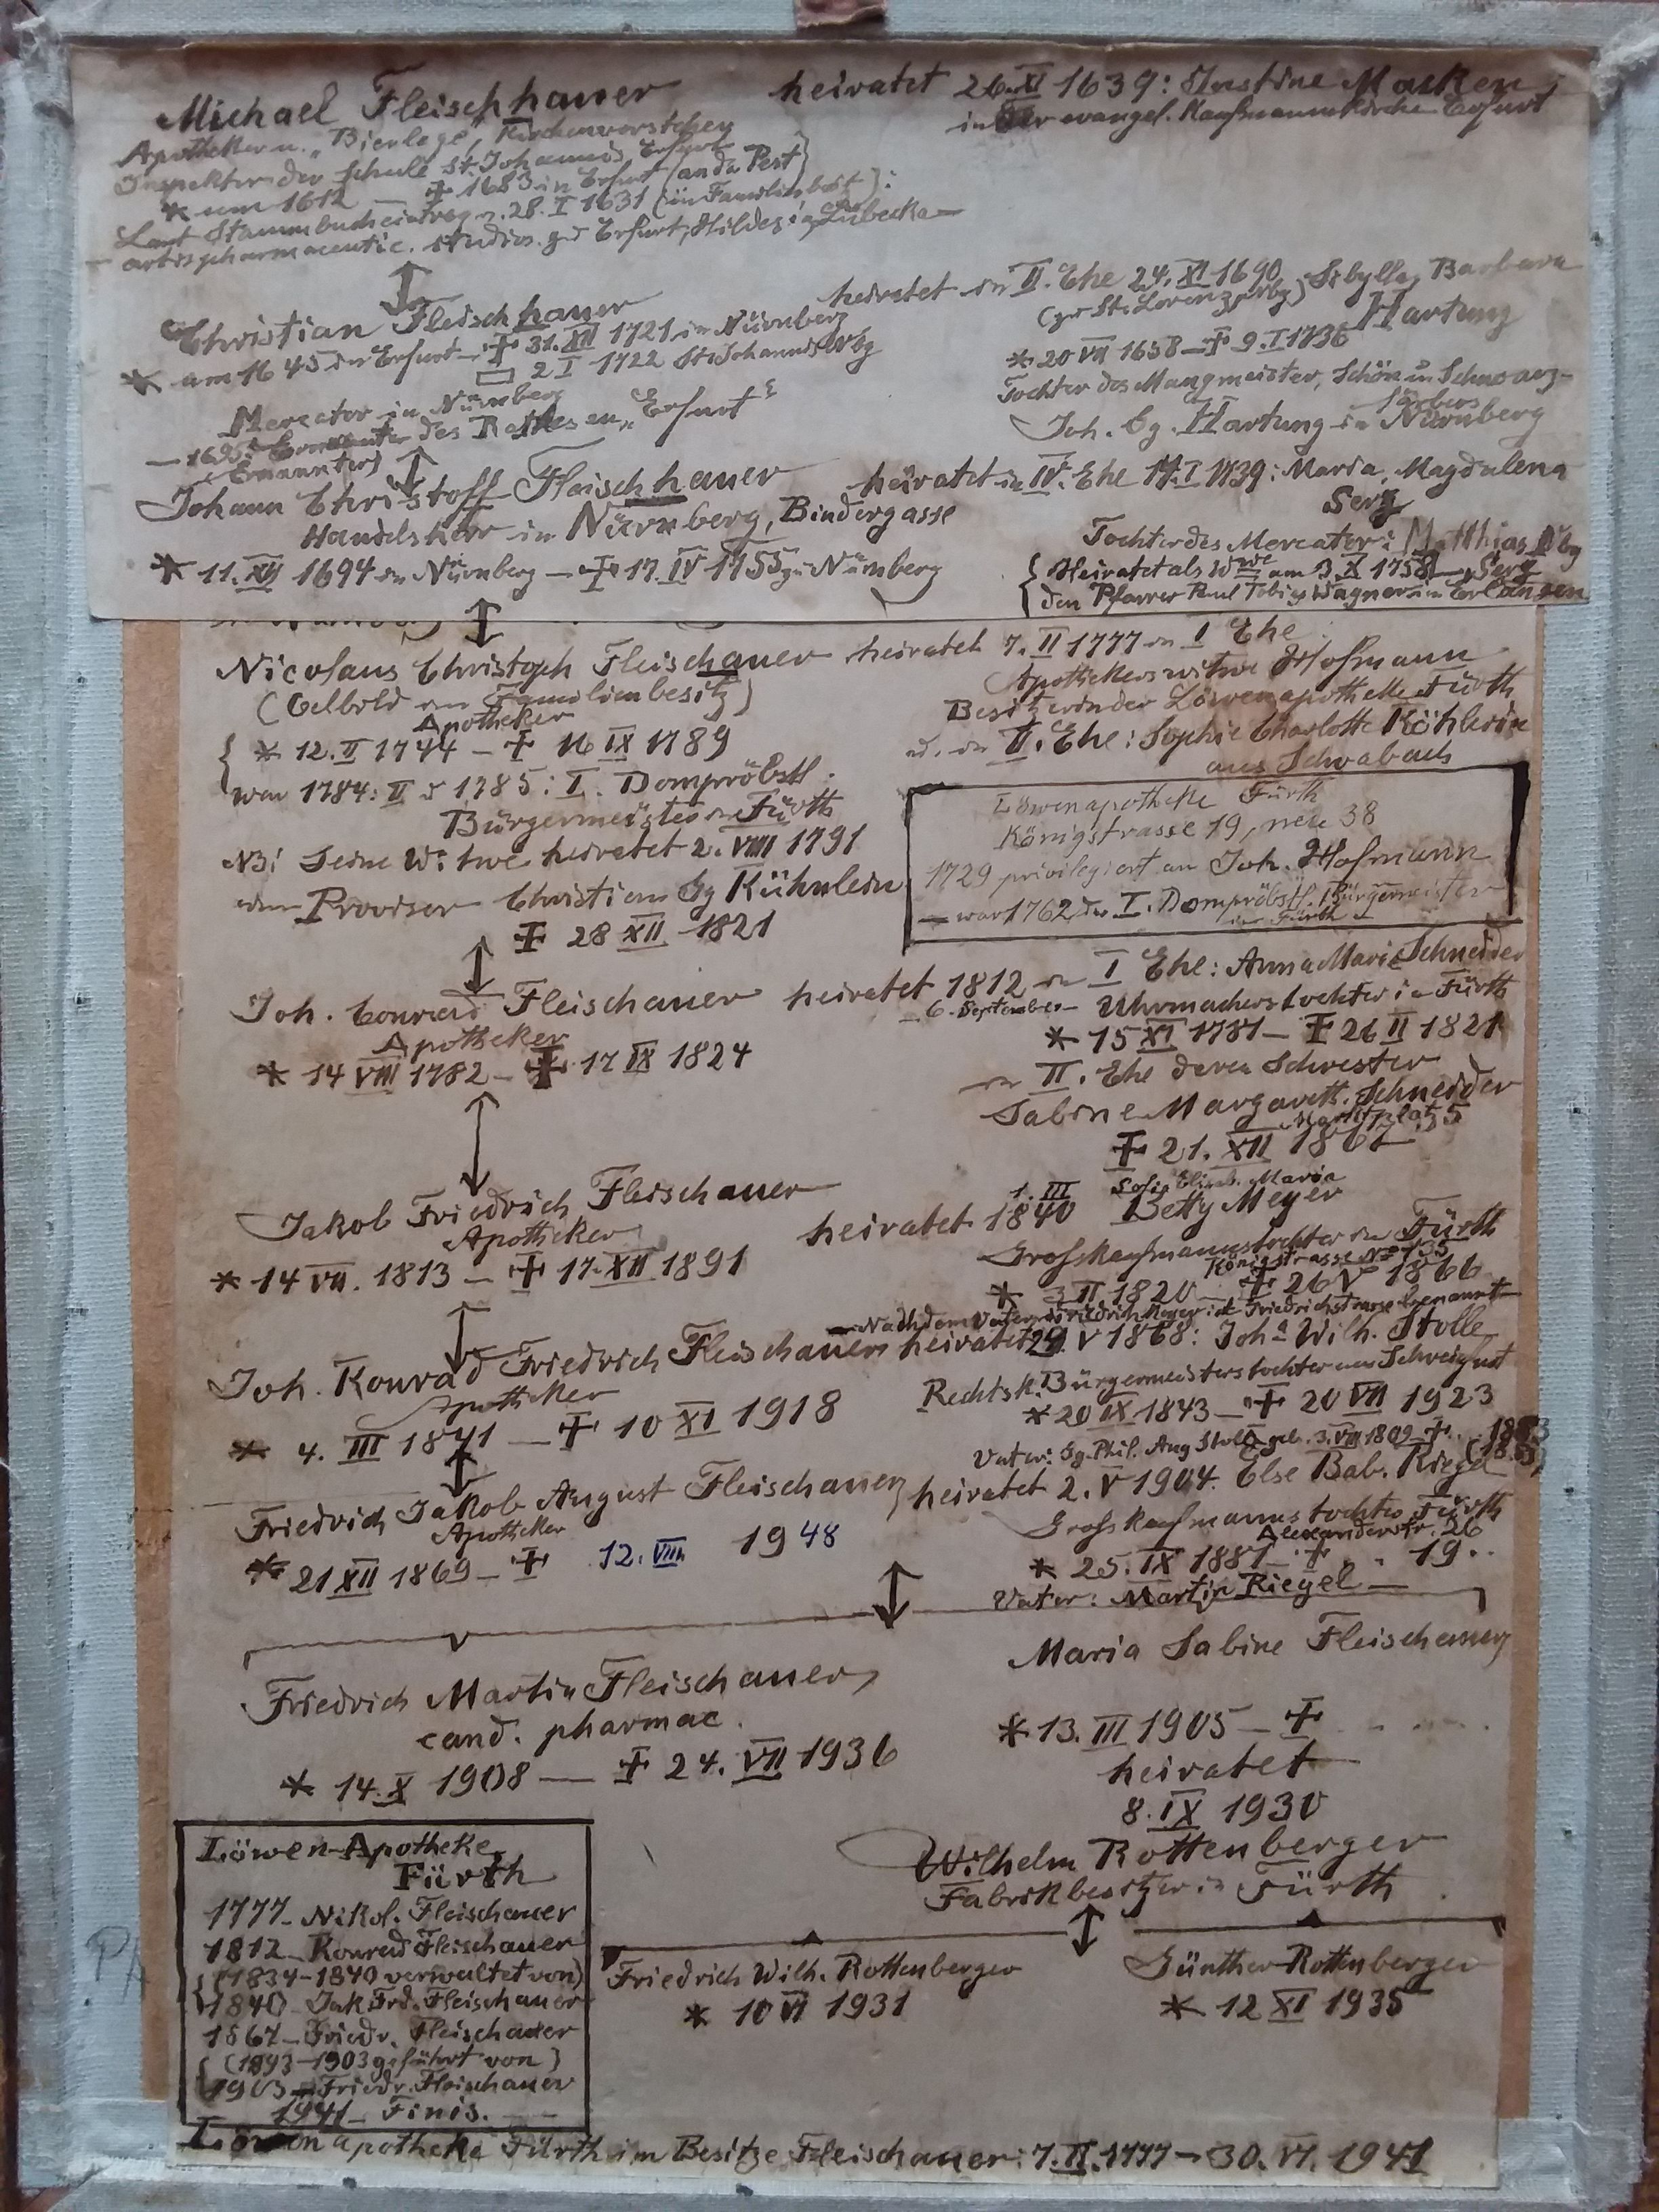 Michael Fleischhauer heiratet 26.XI 1639: Justine Marken,
in der evangel. Kaufmannskirche Erfurt
Apotheker u. „Bierlege", Kirchenvorsteher
Inspektor der Schule St. Johannis Erfurt
* um 1612 — ✝ 1683 in Erfurt (an da Pest)
Laut Stammbucheintrag v. 28. I 1631 (in Familienbesitz):
artis pharmaceutic. studios. zu Erfurt, Hildes. in Lübecka —
Christian Fleischhauer heiratet in II. Ehe 24. XI 1690 Sibylla, Barbara
(zu St. Lorenz, Nbg) Hartung
* am 1645 in Erfurt — ✝ 31. XII 1721 in Nürnberg
2 I 1722 St. Johannis Nbg
* 20 VII 1658 — ✝ 9. I 1736
Tochter des Mangmeister, Schön u. Schwarz-
färbers
Joh. Gg. Hartung in Nürnberg
Mercator in Nürnberg
— 1695: des Rathes en „Erfurt"
(Ernannter)
Johann Christoff Fleischhauer heiratet in IV. Ehe 17. I 1739: Maria, Magdalena
Serz
Handelsherr in Nürnberg, Bindergasse
Tochter des Mercator: Matthias Nbg
Serz
* 11. XII 1694 in Nürnberg — ✝ 17. IV 1755 zu Nürnberg
Heiratet als Wwe am 3. X 1758
den Pfarrer Paul Tobias Wagner in Erlangen
Nicolaus Christoph Fleischauer heiratet 7. II 1777 in I Ehe:
(Oelbild im Familienbesitz) Apothekerswitwe Hofmann
Apotheker
Besitzerin der Löwenapotheke Fürth
* 12. II 1744 — ✝ 16 IX 1789
u. in II. Ehe: Sophie Charlotte Köhlerin
aus Schwabach
war 1784: II u 1785: I. Dompröbstl.
Bürgermeister in Fürth
NB: Seine Witwe heiratet 2. VIII 1791
den Provisor Christian Gg Kühnlein
✝ 28 XII 1821
Löwenapotheke Fürth
Königstrasse 19, neu 38
1729 privilegiert an Joh. Hofmann
— war 1762 der I. Dompröbstl. Bürgermeister
in Fürth —
Joh. Conrad Fleischauer heiratet 1812 in I Ehe: Anna Maria Schneider
Apotheker
— 6. September — Uhrmacherstochter in Fürth
* 14 VIII 1782 — ✝ 17 IX 1824
* 15 XI 1781 — ✝ 26 II 1821
in II. Ehe deren Schwester
Sabine Margareth. Schneider
Marktplatz 5
✝ 21. XII 1867
Jakob Friedrich Fleischauer
Apotheker
* 14 VII. 1813 — ✝ 17. XII 1891
1. III Sofie Elisab. Maria
heiratet 1840 Betty Meyer
Grosskaufmannstochter in Fürth
Königstrasse No 135
* 3 II 1820 — ✝ 26 V 1866
— Nach dem Vater Friedrich Meyer ist Friedrichstrasse benannt —
Joh. Konrad Friedrich Fleischauer heiratet 29. V 1868: Joha Wilh. Stolle
Apotheker
Rechtsk. Bürgermeisterstochter aus Schweinfurt
* 4. III 1841 — ✝ 10 XI 1918
* 20 IX 1843 — ✝ 20 VII 1923
Vater: Gg. Phil. Aug Stolle geb. 3. VII 1809 ✝
Friedrich Jakob August Fleischauer, heiratet 2. V 1904. Else Bab. Riegel
Apotheker
Grosskaufmannstochter Fürth
Alexanderstr. 26
* 21 XII 1869 — ✝ 12. VIII. 1948
* 25. IX 1881 — ✝ . . 19..
Vater: Martin Riegel —
Friedrich Martin Fleischauer,
cand. pharmac.
* 14. X 1908 — ✝ 24. VII 1936
Maria Sabine Fleischauer,
* 13. III 1905 — ✝ . . . .
heiratet
8. IX 1930
Wilhelm Rottenberger
Fabrikbesitzer in Fürth
Friedrich Wilh. Rottenberger
* 10 VI 1931
Günther Rottenberger
* 12 XI 1935
Löwen-Apotheke,
Fürth
1777 — Nikol. Fleischauer
1812 — Konrad Fleischauer
(1834-1840 verwaltet von)
1840 — Jak. Frd. Fleischauer
1867 — Friedr. Fleischauer
(1893-1903 geführt von)
1903 — Friedr. Fleischauer
1941 — Finis.
Löwenapotheke Fürth im Besitze Fleischauer: 7. II. 1777 — 30. VI. 1941